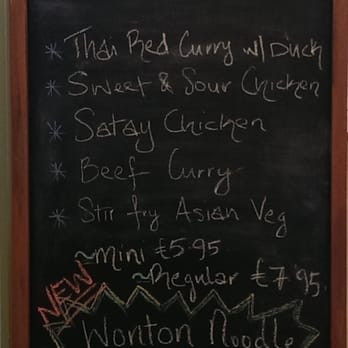 * Thai Red Curry w/ Duck
* Sweet & Sour Chicken
* Satay Chicken
* Beef Curry
* Stir fry Asian Veg
~Mini £5.95
~Regular £7.95
NEW
Wonton Noodle